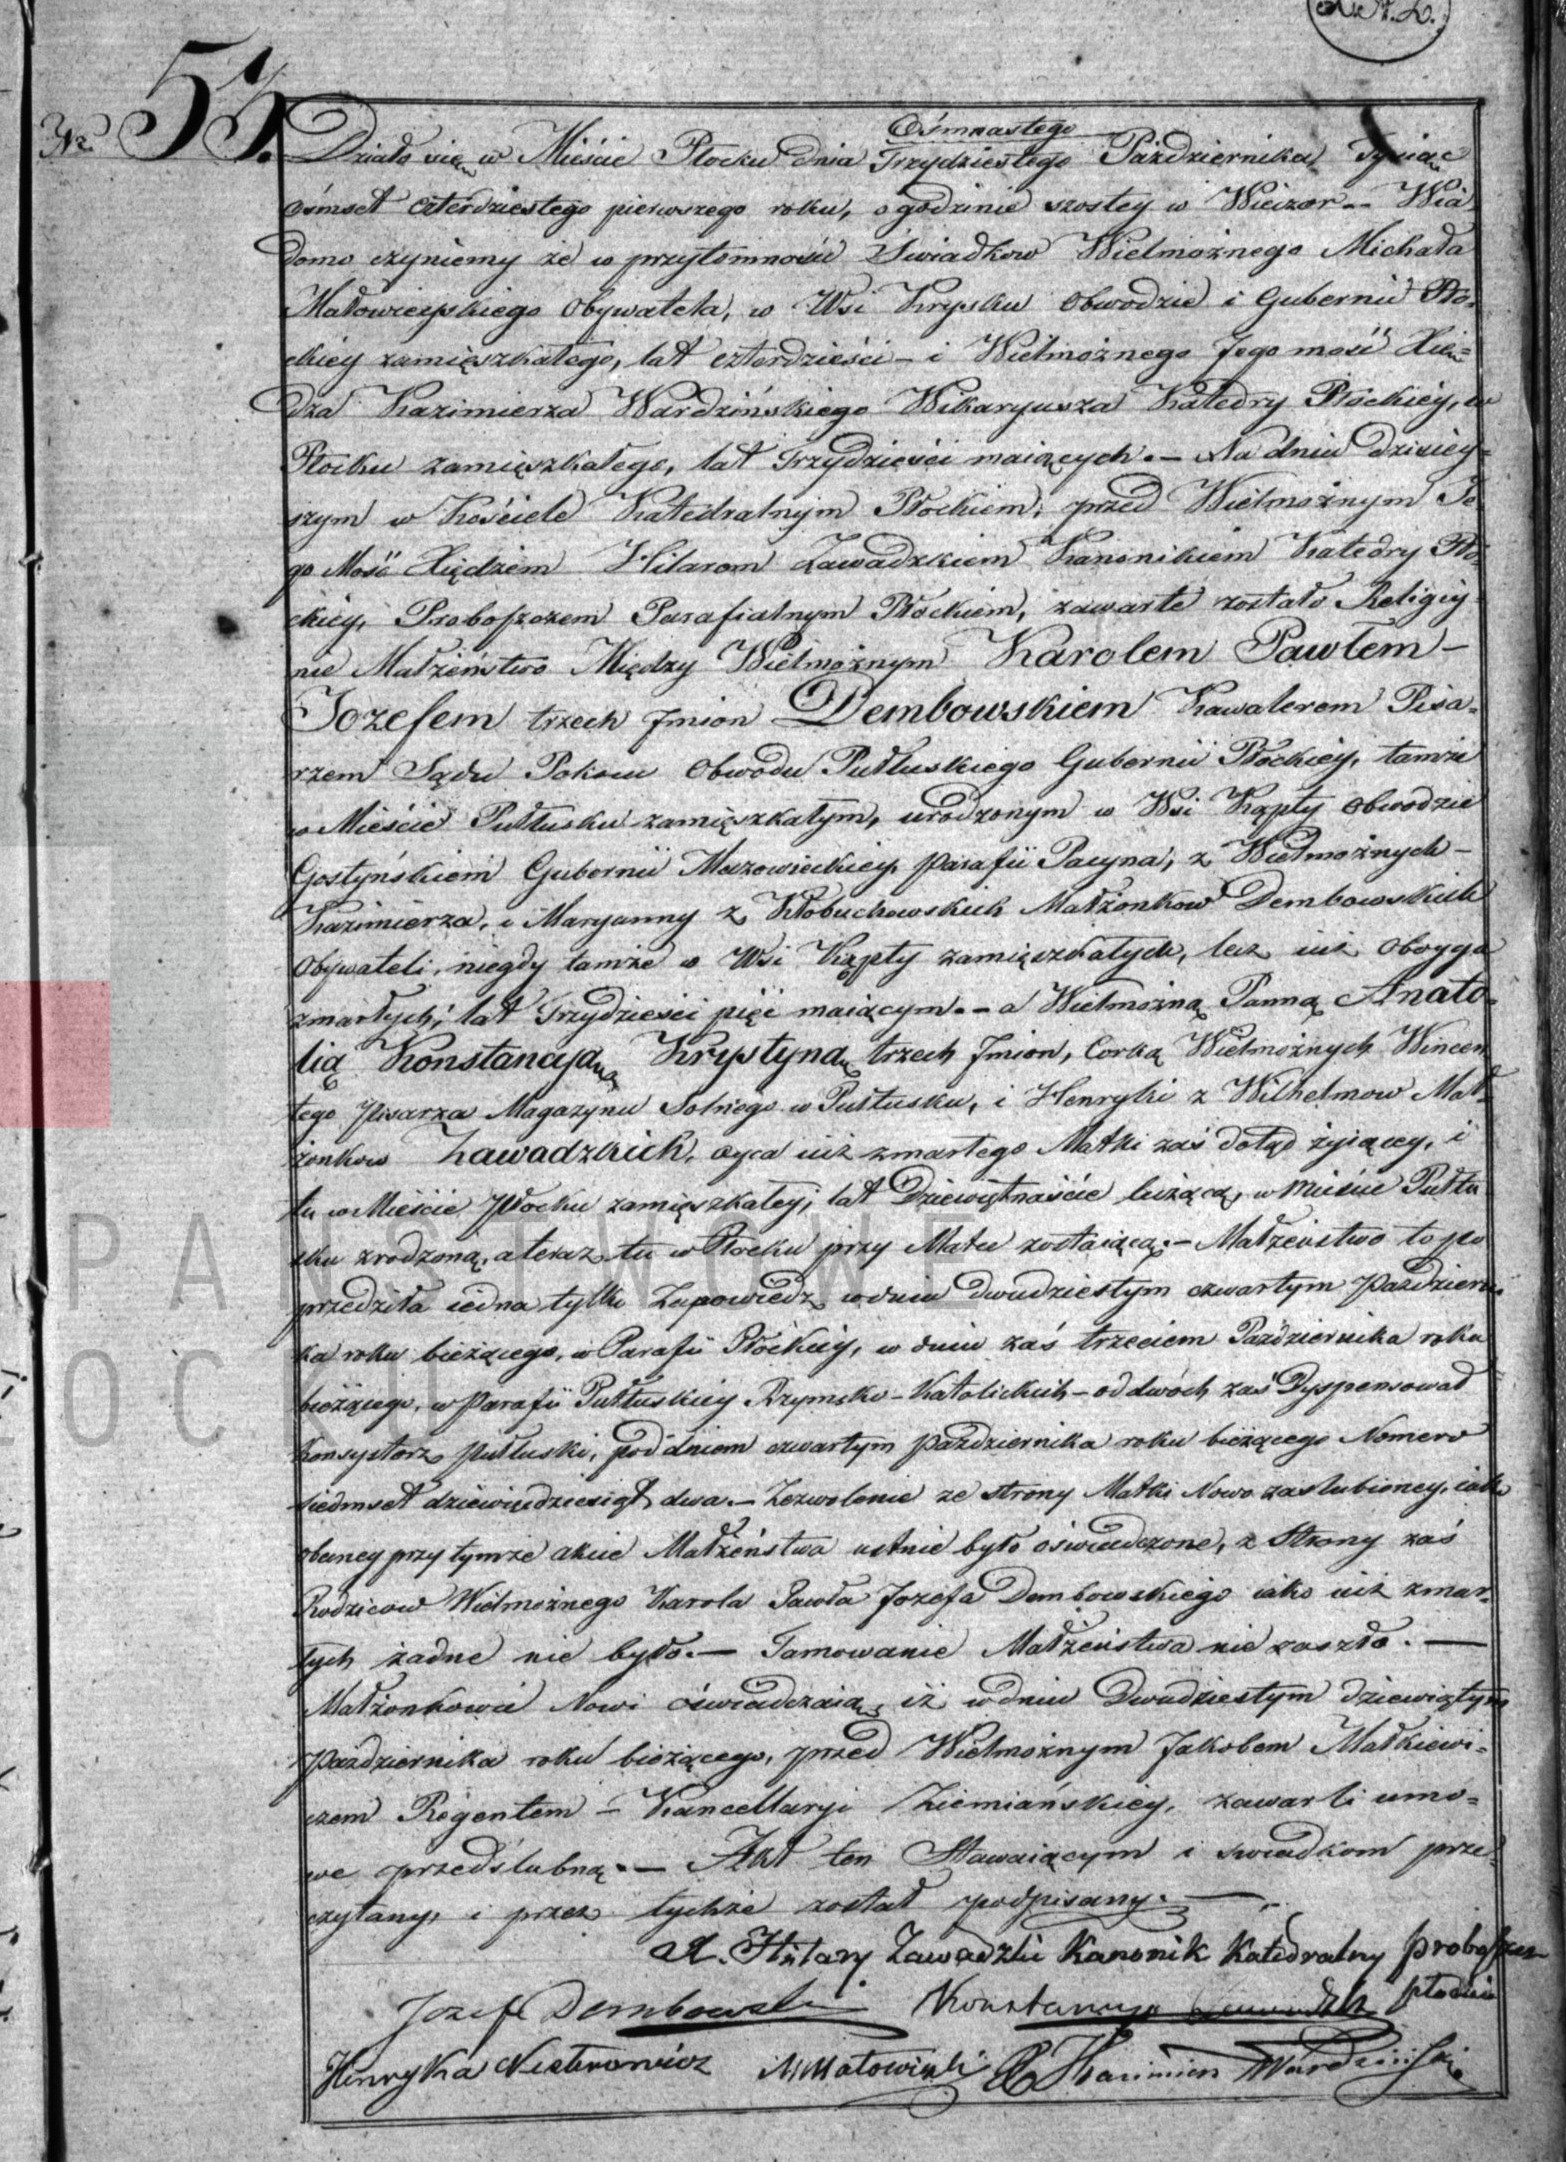 A.A.L.
No 55.
Ośmnastego
Działo się w Mieście Płocku dnia Trzydziestego Października Tysiąc
ośmset czterdziestego pierwszego roku, o godzinie szostey w Wieczor -- Wia
domo czyniemy że w przytomności Świadkow Wielmożnego Michała
Małowieyskiego Obywatela, w Wsi Krysku Obwodzie i Gubernii Pło-
ckiey zamięszkałego, lat czterdzieści – i Wielmożnego Jego mość Xię-
dza Kazimierza Wardzińskiego Wikaryusza Katedry Płockiey, w
Płocku zamięszkałego, lat Trzydzieści maiących. – Na dniu dzisiey-
szym w Kościele Katedralnym Płockiem, przed Wielmożnym Je
go Mość Xiędzem Hilarom Zawadzkiem Kanonikiem Katedry Pło-
ckiey, Proboszczem Parafialnym Płockiem, zawarte zostało Religiy
nie Małżeństwo Między Wielmożnym Karolem Pawłem –
Jozefem trzech Jmion Dembowskiem Kawalerem Pisa-
rzem Sądu Pokoiu Obwodu Pułtuskiego Gubernii Płockiey, tamże
w Mieście Pułtusku zamięszkałym, urodzonym w Wsi Kąpty Obwodzie
Gostyńskiem Gubernii Mazowieckiey Parafii Pacyna, z Wielmożnych –
Kazimierza, i Maryanny z Kłobuchowskich Małżonkow Dembowskich
Obywateli, niegdy tamże w Wsi Kąpty zamięszkałych, lecz iuż oboyga
zmarłych, lat Trzydzieści pięć maiącym. – a Wielmożną Panną Anato-
lią Konstancyą Krystyną trzech Jmion, Corką Wielmożnych Wincen
tego Pisarza Magazynu Solnego w Pułtusku, i Henryki z Wilhelmow Mał-
żonkow Zawadzkich, oyca iuż zmarłego Matki zaś dotąd żyiącey, i
tu w Mieście Płocku zamięszkałey, lat Dziewiętnaście liczącą, w Mieście Pułtu
sku zrodzoną, a teraz tu w Płocku przy Matce zostaiącą. – Małżeństwo to po
przedziła iedna tylko Zapowiedz w dniu dwudziestym czwartym Październi
ka roku bieżącego, w Parafii Płockiey, w dniu zaś trzeciem Października roku
bieżącego, w Parafii Pułtuskiey Rzymsko-Katolickich – od dwóch zaś Dyspensował
Konsystorz Pułtuski, pod dniem czwartym Października roku bieżącego Nomero
siedmset dziewięćdziesiąt dwa. – Zezwolenie ze strony Matki Nowo zaślubioney, iako
obecney przy tymże akcie Małżeństwa ustnie było oświadczone, z Strony zaś
Rodzicow Wielmożnego Karola Pawła Jozefa Dembowskiego iako iuż zmar-
łych żadne nie było. – Tamowanie Małżeństwa nie zaszło. –
Małżonkowie Nowi oświadczaią, iż w dniu Dwudziestym dziewiątym
Października roku bieżącego, przed Wielmożnym Jakobem Małkiewi-
czem Regentem – Kancellaryi Ziemiańskiey, zawarli umo-
we przedślubną. – Akt ten Stawaiącym i swiadkom prze-
czytany, i przez tychże został podpisany. –
X. Hilary Zawadzki Kanonik Katedralny Proboszcz
płocki
Jozef Dembowski Konstancya Zawadzka
Henryka Nestorowicz M Małowieski X Kazimierz Wardziński
PAŃSTWOWE
OCK